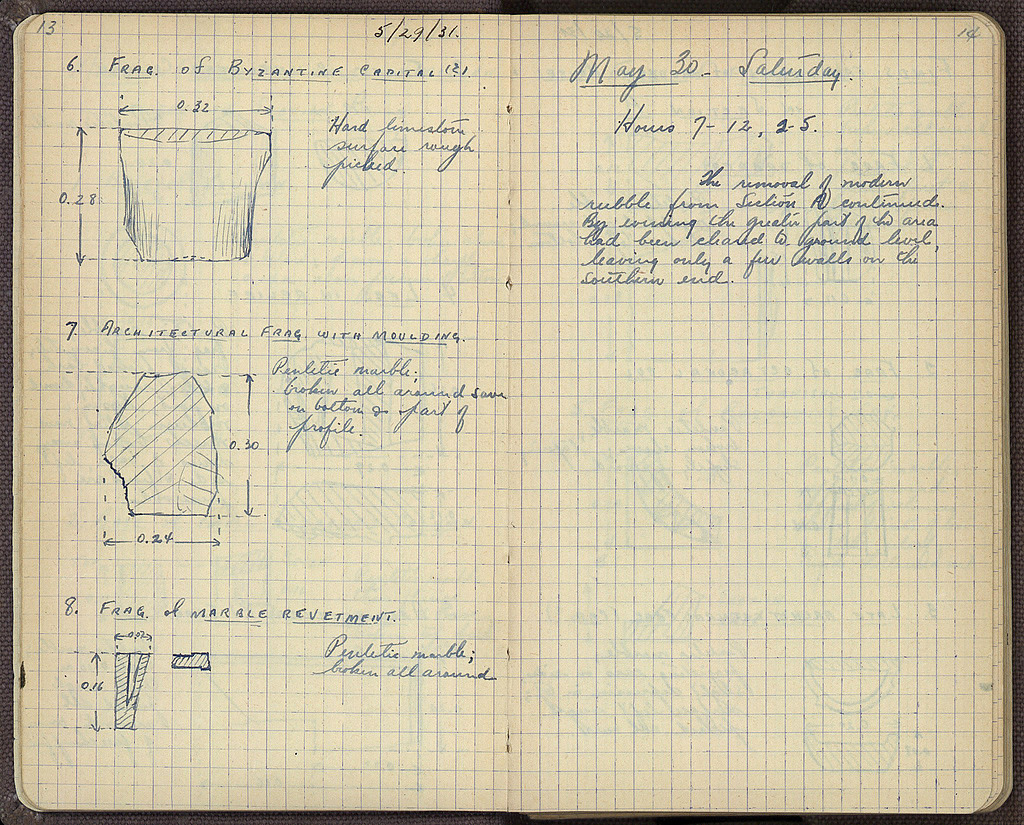 13
5/29/31.
6. FRAG. of BYZANTINE CAPITAL (?).
0.32
Hard limestone
surface rough
picked.
0.28
7. ARCHITECTURAL FRAG. WITH MOULDING.
Pentelic marble;
broken all around save
on bottom & part of
profile.
0.30
0.24
8. FRAG. of MARBLE REVETMENT.
0.07
Pentelic marble;
broken all around
0.16
14
May 30 - Saturday.
Hours 7-12, 2-5.
The removal of modern
rubble from Section A continued.
By evening the greater part of the area
had been cleared to ground level,
leaving only a few walls on the
Southern end.